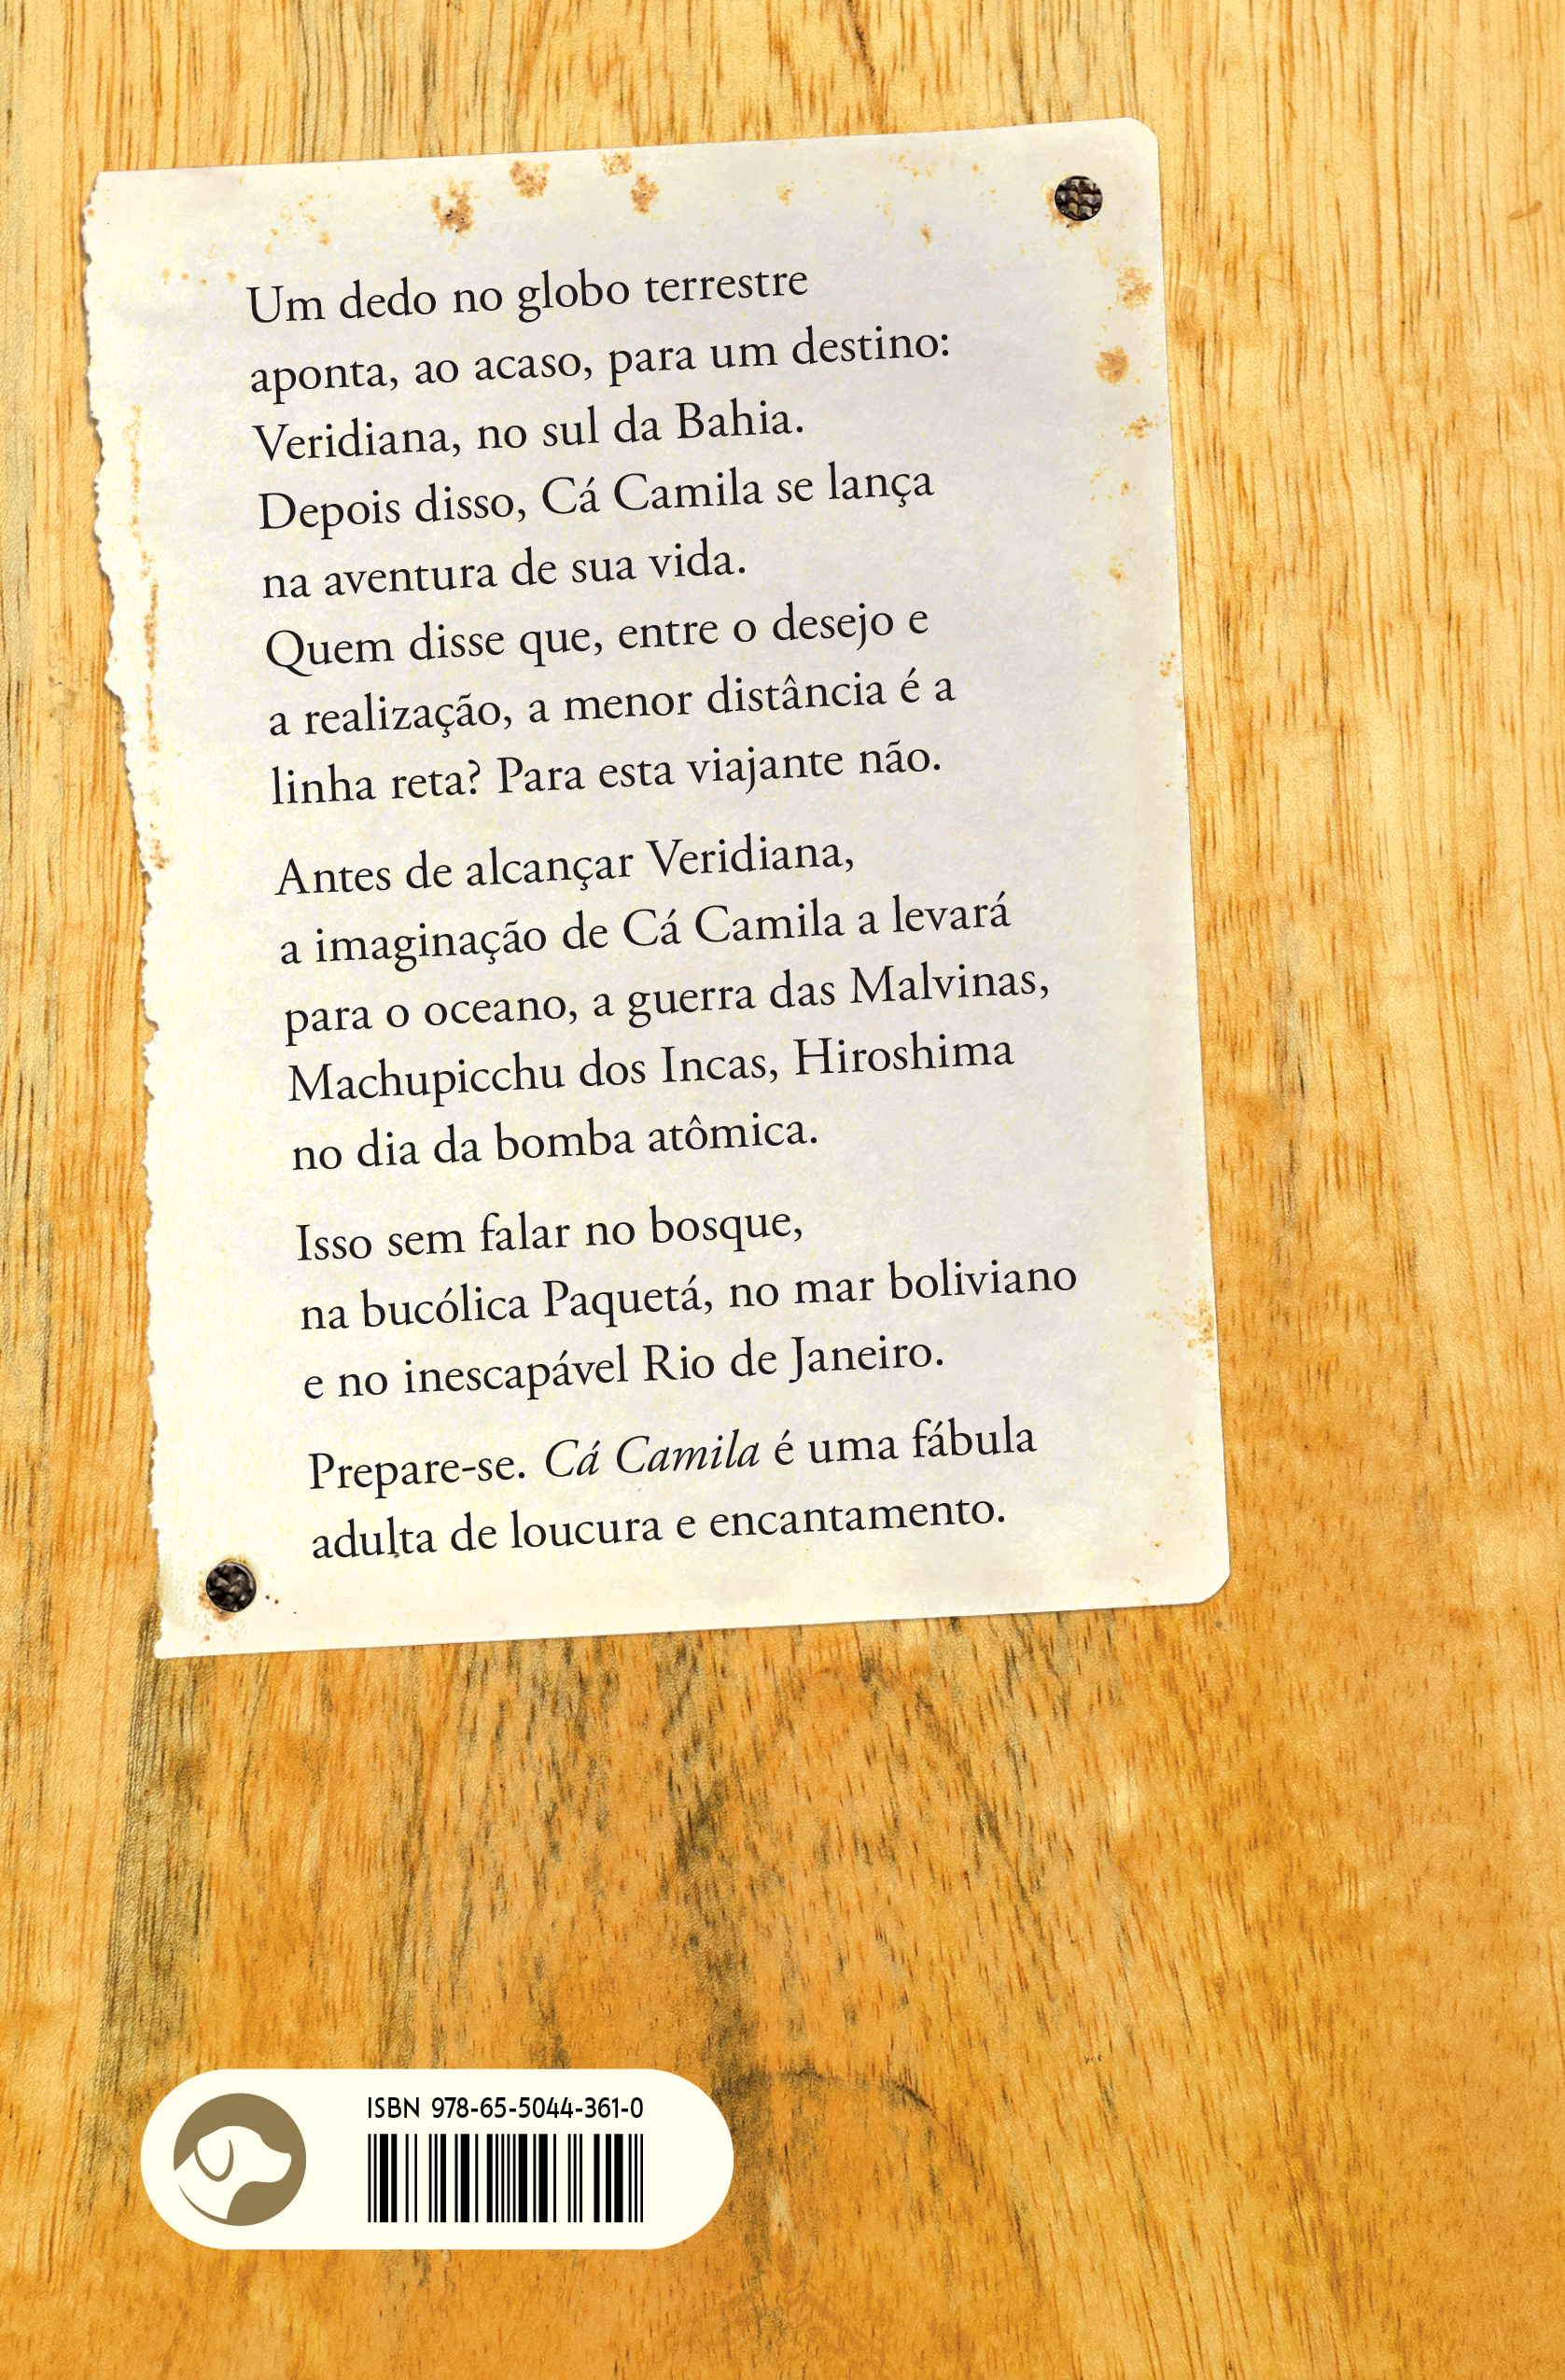 Um dedo no globo terrestre
aponta, ao acaso, para um destino:
Veridiana, no sul da Bahia.
Depois disso, Cá Camila se lança
na aventura de sua vida.
Quem disse que, entre o desejo e
a realização, a menor distância é a
linha reta? Para esta viajante não.
Antes de alcançar Veridiana,
a imaginação de Cá Camila a levará
para o oceano, a guerra das Malvinas,
Machupicchu dos Incas, Hiroshima
no dia da bomba atômica.
Isso sem falar no bosque,
na bucólica Paquetá, no mar boliviano
e no inescapável Rio de Janeiro.
Prepare-se. Cá Camila é uma fábula
adulta de loucura e encantamento.
ISBN 978-65-5044-361-0